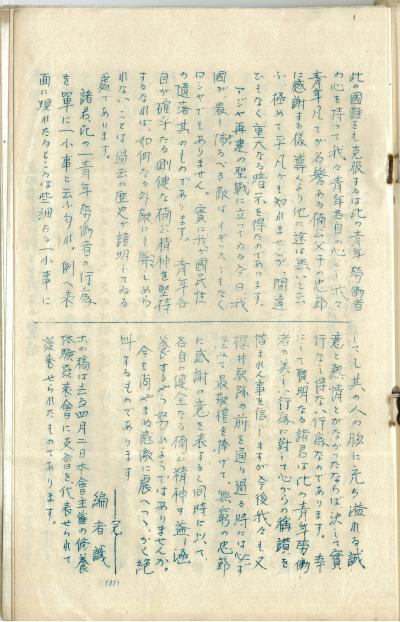 此の國難をも克服するは此の青年勞働者
の心を持って我々青年各自の心とし我々
青年凡てが名譽ある楠公父子の忠節
に感謝する儀導より他に途は無いと云
ふ、極めて平凡かも知れませんが、間違
ひもなく重大なる暗示を得たのであります。
アジヤ再建の聖戰に立ってゐる今日、我
國が、最も怖るべき敵はイギリスでもなく
ロシヤでもありません。實に我が國民性
の墮落其のものであります。青年各
自が確乎たる剛健な楠公精神を堅持
するなれば、如何なる外敵にも辱しめら
れないことは過去の歴史が證明してゐる
處であります。
諸君、此の一青年勞働者の行爲
を單に一小事と云ふ勿れ。例へ表
面に現れたるところは些細なる一小事に
しても其の人の胸に充ち溢れる誠
意と熱情とがなかったならば決して實
行なし得ない行爲なのであります。幸
にして賢明なる諸君は此の青年勞働
者の美しい行爲に對して心からの稱讃を
惜まれん事を信じますが今後我々も又
櫻井驛跡の前を通り過る時には必ず
最敬禮を捧げて、無窮の忠節
に感謝の意を表すると同時に以て、
各自の健全なる楠公精神を益々涵
養するやう努めようではありませんか。
今も尚やまぬ感激に震へつゝ、かく絶
叫するものであります
―完―
編者識
本の稿は去る四月二日本會主催の修養
体驗發表會に支會を代表せられて
發表せられたものであります。
(11)
1